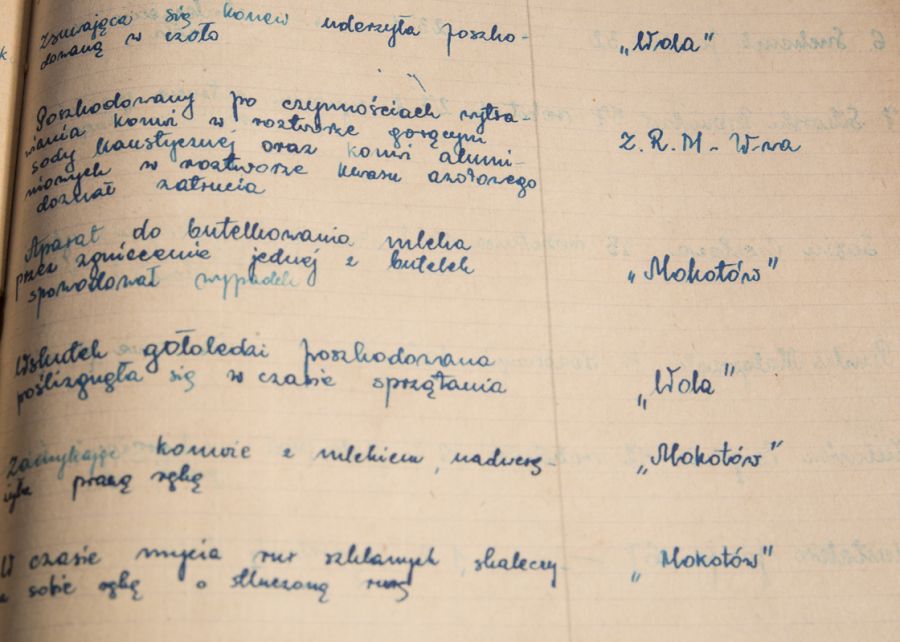 Zsuwająca się konew uderzyła poszko-
dowaną w czoło
„Wola"
Poszkodowany po czynnościach wytra-
wiania konwi w roztworze gorącym
sody kaustycznej oraz konwi alumi-
niowych w roztworze kwasu azotowego
doznał zatrucia
Z.R.M - W-wa
Aparat do butelkowania mleka
przez zgniecenie jednej z butelek
spowodował wypadek
„Mokotów"
Wskutek gołoledzi poszkodowana
poślizgnęła się w czasie sprzątania
„Wola"
Zamykając konwie z mlekiem, nadwerę-
żyła prawą rękę
„Mokotów"
W czasie mycia rur szklanych, skaleczy-
sobie rękę o stłuczoną rurę
„Mokotów"